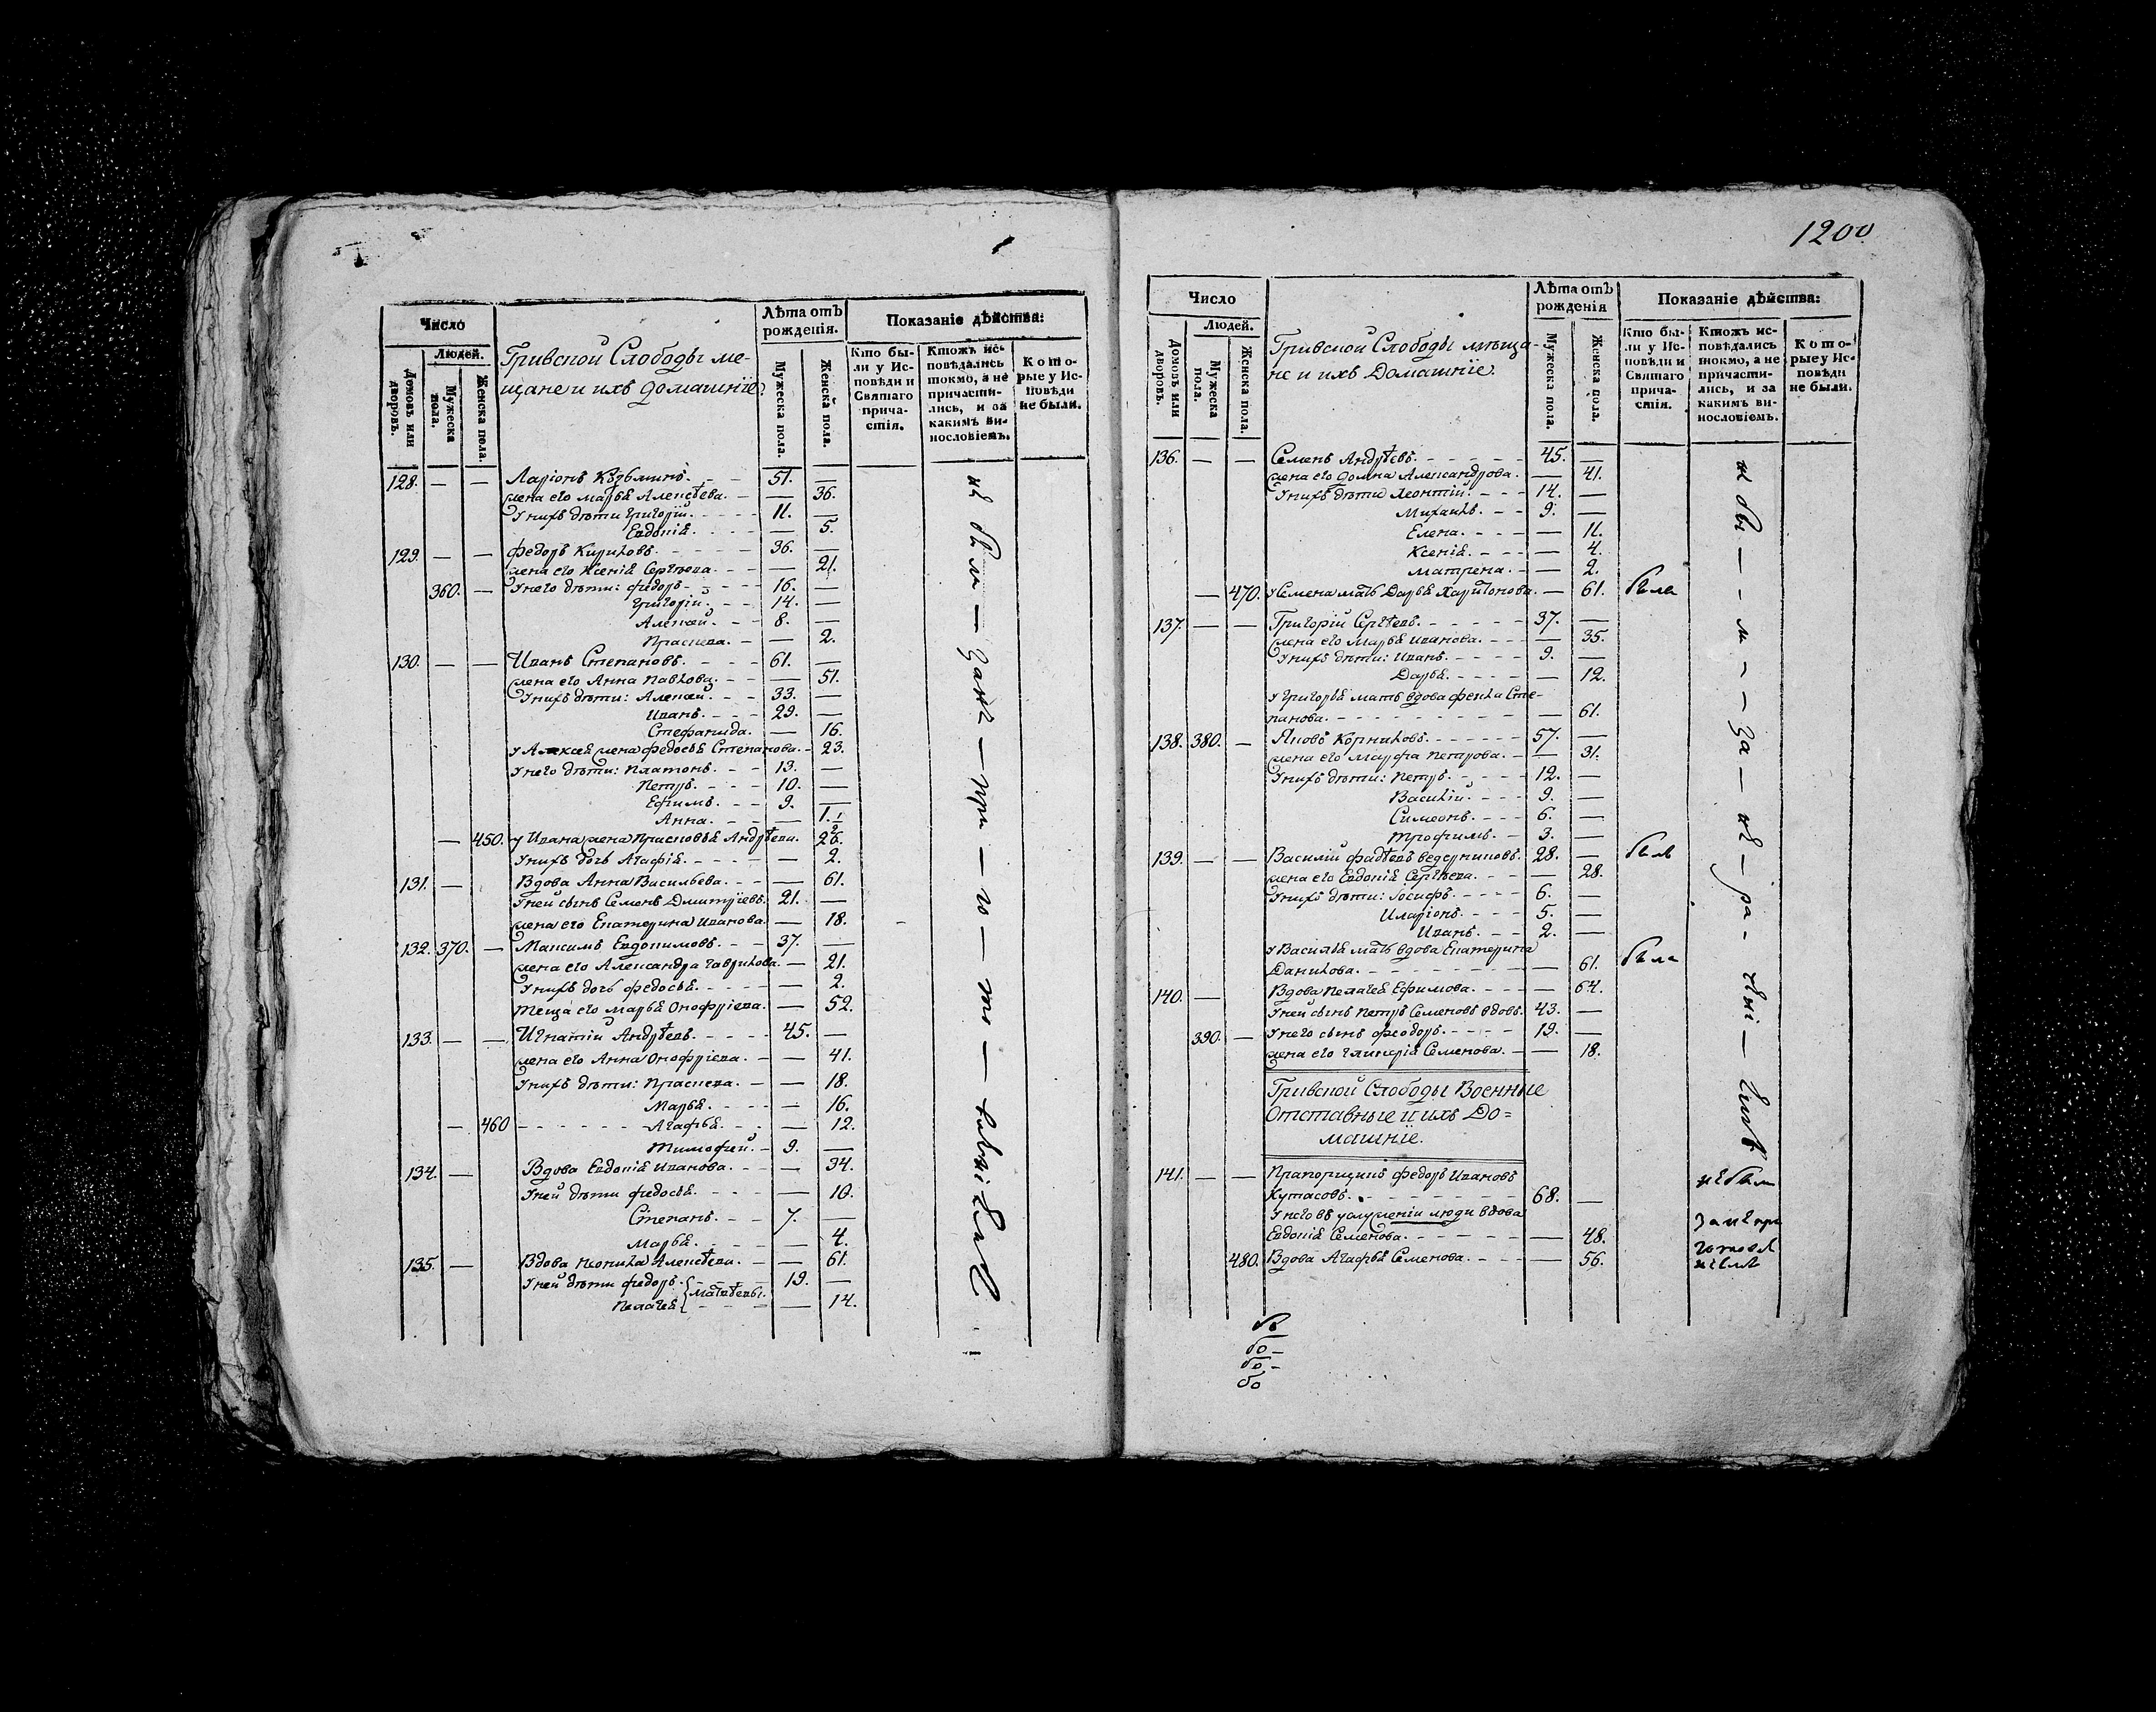 1200
Число
Людей.
Домовъ или дворовъ.
Мужеска пола.
Женска пола.
Гривской Слободы ме-
щане и ихъ домашнїе.
Лѣта отъ
рожденія.
Мужеска пола.
Женской пола.
Показаніе дѣйства:
Кто бы-
ли у Ис-
повѣди и
Святаго
прича-
стія.
Ктожъ ис-
повѣдались
токмо, а не
причасти-
лись, и за
какимъ ви-
нословіемъ.
Кото-
рые у Ис-
повѣди
не были.
128. — — Ларіонъ Козьминъ. 51. —
жена его Марья Алексѣева. — 36.
У нихъ дѣти Григорій. 11. —
Евдокія. — 5.
129. — — Федоръ Кириловъ. 36. —
жена его Ксенія Сергѣева. — 21.
360. — У него дѣти: Федоръ 16. —
Григорій. 14. —
Алексѣй. 8. —
Праскева. — 2.
130. — — Иванъ Степановъ. 61. —
жена его Анна Павлова. — 51.
У нихъ дѣти: Алексѣй. 33. —
Иванъ. 29. —
Стефанида. — 16.
у Алексѣя жена Федосья Степанова. — 23.
У него дѣти: Платонъ. 13. —
Петръ. 10. —
Ефимъ. 9. —
Анна. — 1.
— 450. у Ивана жена Прасковья Андрѣева.
У нихъ дочь Агафія. — 2.
131. — Вдова Анна Васильева. — 61.
У ней сынъ Семенъ Дмитріевъ. 21. —
жена его Екатерина Иванова. — 18.
132. 370. — Максимъ Евдокимовъ. 37. —
жена его Александра Гаврилова. — 21.
У нихъ дочь Федосья. — 2.
Теща его Марья Онофріева. — 52.
133. — — Игнатій Андрѣевъ. 45. —
жена его Анна Онофріева. — 41.
У нихъ дѣти: Праскева. — 18.
Марья. — 16.
— 460 Агафья. — 12.
Тимофей. 9. —
134. — Вдова Евдокія Иванова. — 34.
У ней дѣти Федосья. — 10.
Степанъ. 7. —
Марья. — 4.
135. — Вдова Неонила Алексѣева. — 61.
У ней дѣти Федоръ 19. —
Матвѣевы.
Пелагея — 14.
Число
Людей.
Домовъ или дворовъ.
Мужеска пола.
Женска пола.
Гривской Слободы мѣща-
не и ихъ Домашнїе.
Лѣта отъ
рожденія
Мужеска пола.
Женска пола.
Показаніе дѣйства:
Кто бы-
ли у Ис-
повѣди и
Святаго
прича-
стія.
Ктожъ ис-
повѣдались
токмо, а не
причасти-
лись, и за
какимъ ви-
нословіемъ.
Кото-
рые у Ис-
повѣди
не были.
136. — — Семенъ Андрѣевъ. 45. —
жена его Домна Александрова. — 41.
У нихъ дѣти Леонтій. 14. —
Михаилъ. 9. —
Елена. — 11.
Ксенія. — 4.
Матрена. — 2.
— 470. у Семена мать Дарья Харитонова. — 61. была
137. — — Григорій Сергѣевъ. 37. —
жена его Марья Иванова. — 35.
У нихъ дѣти: Иванъ. 9. —
Дарья. — 12.
у Григорья мать вдова Фекла Сте-
панова. — 61.
138. 380. — Яковъ Корниловъ. 57. —
жена его Марфа Петрова. — 31.
У нихъ дѣти: Петръ. 12. —
Василій. 9. —
Симеонъ. 6. —
Трофимъ. 3. —
139. — — Василій Фадѣевъ Ведерниковъ. 28. — былъ
жена его Евдокія Сергѣева. — 28.
У нихъ дѣти: Іосифъ. 6. —
Иларіонъ. 5. —
Иванъ. 2. —
у Василья мать вдова Екатерина
Данилова. — 61. была
140. — Вдова Пелагея Ефимова. — 64.
У ней сынъ Петръ Семеновъ вдовъ. 43. —
390. — У него сынъ Феодоръ. 19. —
жена его Гликерія Семенова. — 18.
Гривской Слободы Военные
Отставные и ихъ До=
машнїе.
141. — — Прапорщикъ Федоръ Ивановъ
Кутасовъ. 68. —
У него въ услуженіи люди вдова
Евдокія Семенова. — 48.
480. Вдова Агафья Семенова. — 56.
не были